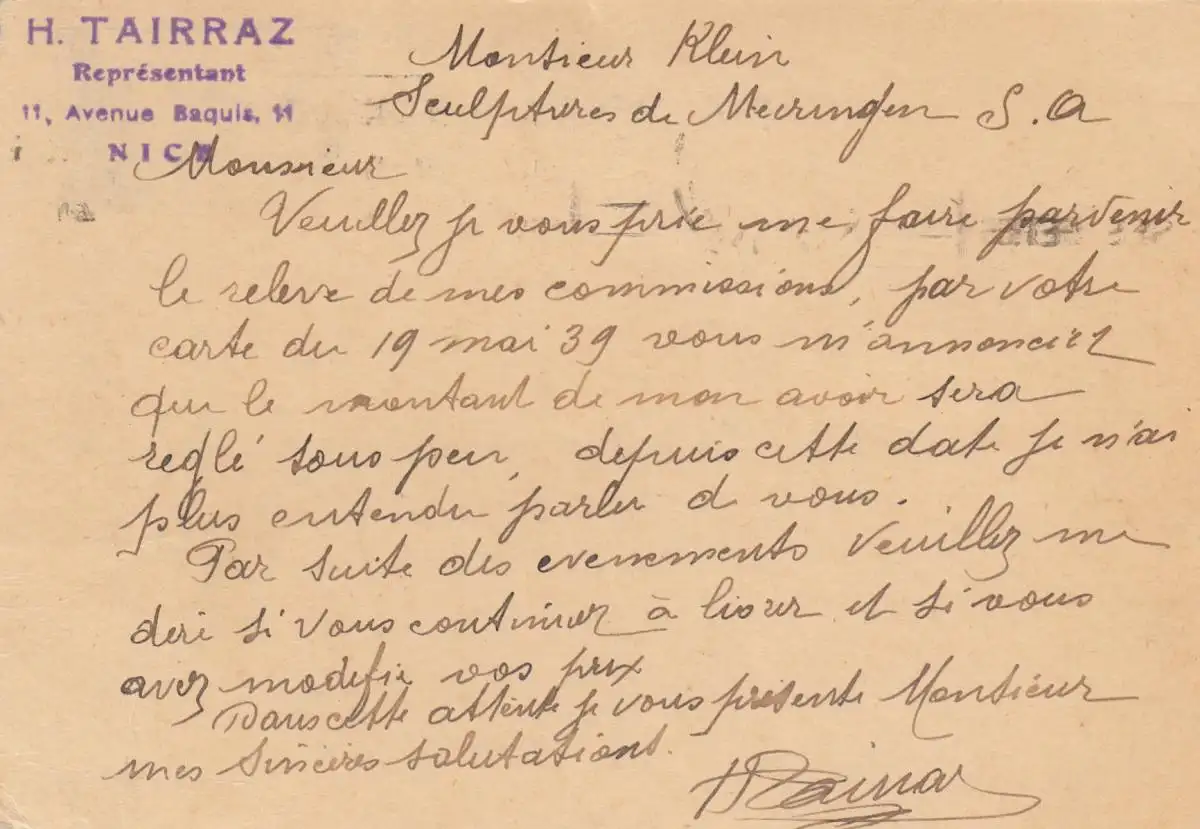 H. TAIRRAZ
Représentant
11, Avenue Baquis, 11
NICE
Monsieur Klein
Sculptures de Meiringen S.A
Monsieur
Veuillez je vous prie me faire parvenir
le relevé de mes commissions, par votre
carte du 19 mai 39 vous m'annonciez
que le montant de mon avoir sera
reglé sous peu, depuis cette date je n'ai
plus entendu parler d vous.
Par suite des evenements veuillez me
dire si vous continuez à livrer et si vous
avez modifié vos prix
Dans cette attente je vous présente Monsieur
mes sincères salutations.